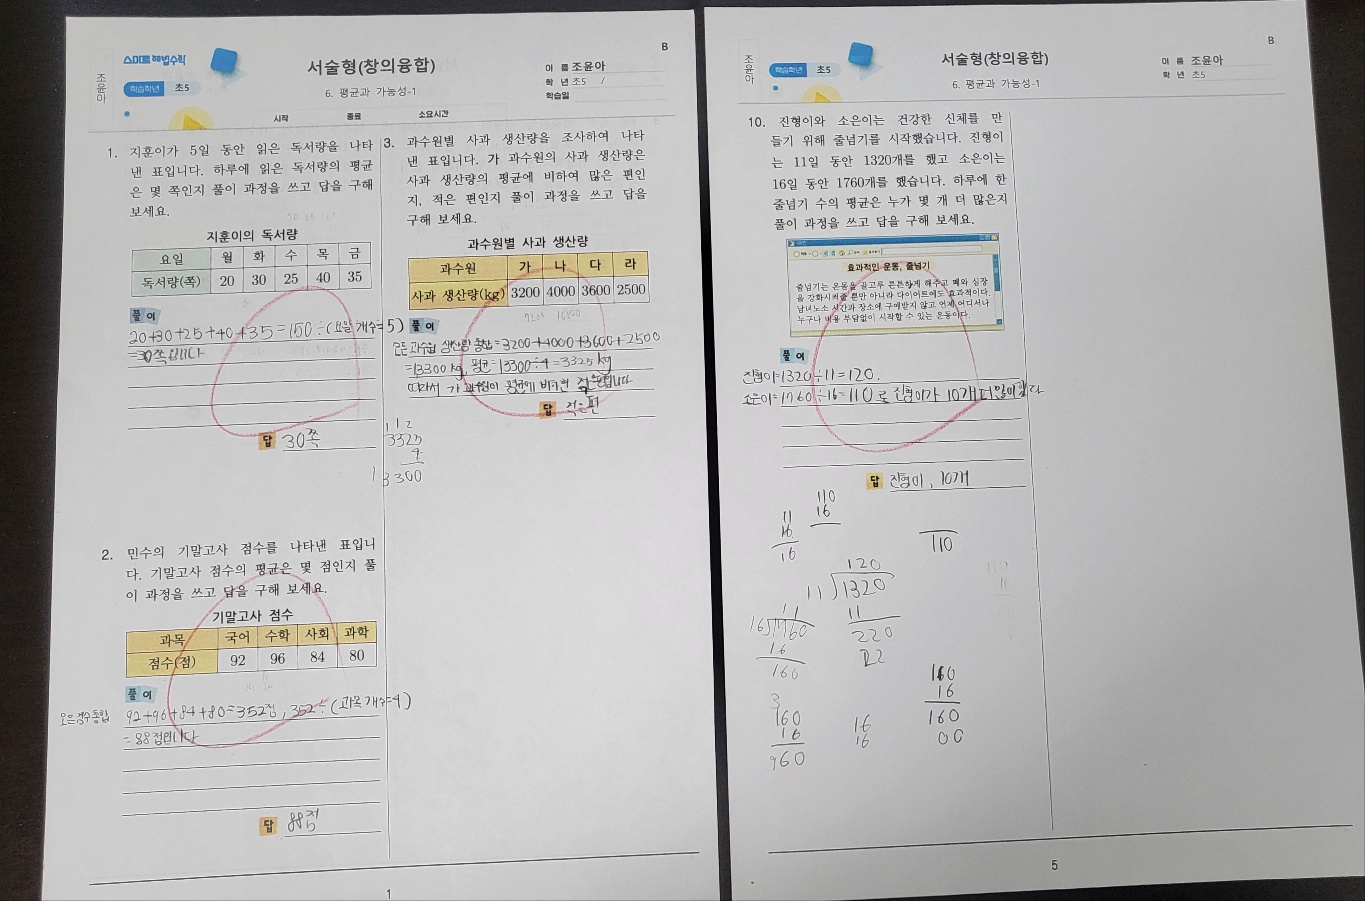 B
스마트 해법수학
서술형(창의융합)
이 름 조윤아
조윤아
학습학년 초5
학 년 초5 /
6. 평균과 가능성-1
학습일
시작 종료 소요시간
1. 지훈이가 5일 동안 읽은 독서량을 나타
낸 표입니다. 하루에 읽은 독서량의 평균
은 몇 쪽인지 풀이 과정을 쓰고 답을 구해
보세요.
지훈이의 독서량
요일 월 화 수 목 금
독서량(쪽) 20 30 25 40 35
풀이
20+30+25+40+35=150÷(요일 개수=5)
=30쪽입니다
답 30쪽
2. 민수의 기말고사 점수를 나타낸 표입니
다. 기말고사 점수의 평균은 몇 점인지 풀
이 과정을 쓰고 답을 구해 보세요.
기말고사 점수
과목 국어 수학 사회 과학
점수(점) 92 96 84 80
풀이
모든점수총합 92+96+84+80=352점, 352÷(과목 개수=4)
=88점입니다
답 88점
3. 과수원별 사과 생산량을 조사하여 나타
낸 표입니다. 가 과수원의 사과 생산량은
사과 생산량의 평균에 비하여 많은 편인
지, 적은 편인지 풀이 과정을 쓰고 답을
구해 보세요.
과수원별 사과 생산량
과수원 가 나 다 라
사과 생산량(kg) 3200 4000 3600 2500
풀이
모든 과수원 생산량 총합=3200+4000+3600+2500
=13300kg, 평균=13300÷4=3325kg
따라서 가 과수원이 평균에 비하면 적은편입니다
답 적은편
112
3325
4
13300
1
B
서술형(창의융합)
이 름 조윤아
조윤아
학습학년 초5
학 년 초5
6. 평균과 가능성-1
10. 진형이와 소은이는 건강한 신체를 만
들기 위해 줄넘기를 시작했습니다. 진형이
는 11일 동안 1320개를 했고 소은이는
16일 동안 1760개를 했습니다. 하루에 한
줄넘기 수의 평균은 누가 몇 개 더 많은지
풀이 과정을 쓰고 답을 구해 보세요.
효과적인 운동, 줄넘기
줄넘기는 온몸을 골고루 튼튼하게 해주고 폐와 심장
을 강화시켜줄 뿐만 아니라 다이어트에도 효과적이다.
남녀노소 시간과 장소에 구애받지 않고 언제 어디서나
누구나 비용 부담없이 시작할 수 있는 운동이다.
풀이
진형이=1320÷11=120.
소은이=1760÷16=110로 진형이가 10개 더 많이 했다
답 진형이, 10개
110
16
11
16
16
110
120
11)1320
11
220
22
11
16)1760
16
160
3
160
16
960
16
16
160
16
160
00
5